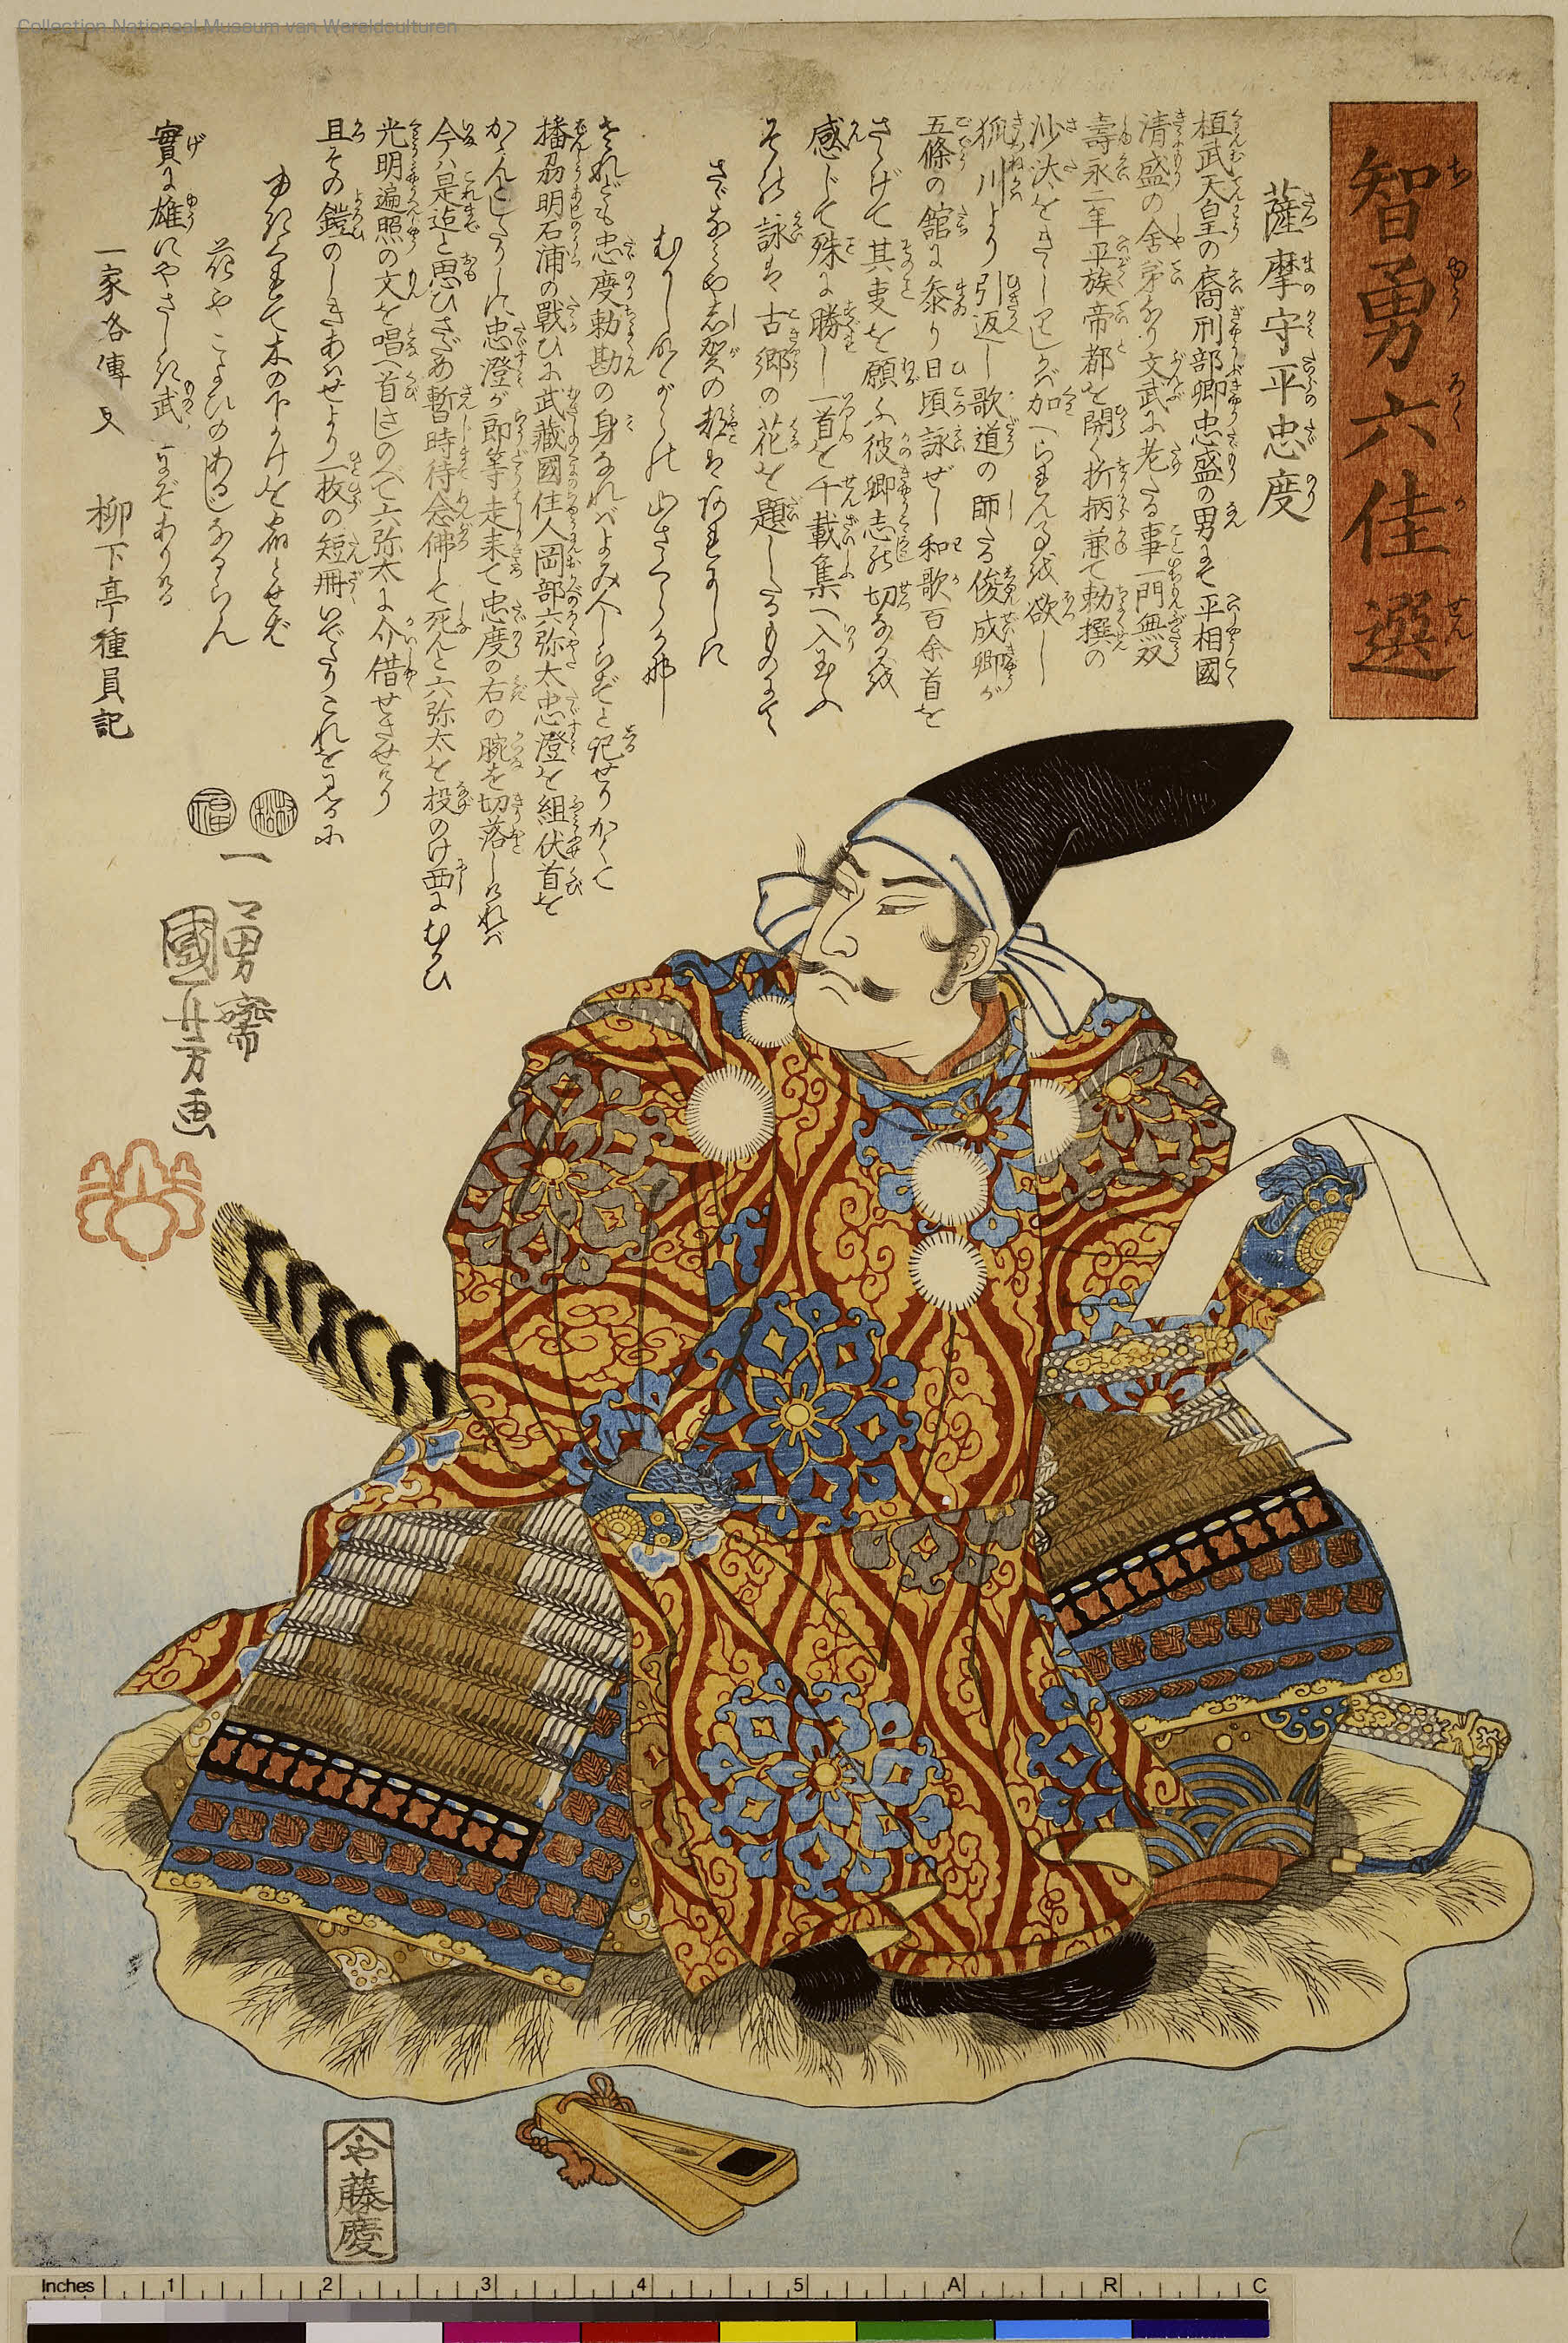 Collection Nationaal Museum van Wereldculturen
智勇六佳選
ちゆうろくかせん
薩摩守平忠度
桓武天皇の裔刑部卿忠盛の男にして平相國
清盛の舎弟なり文武に老たる事一門無双
壽永二年平族帝都を開く折柄兼て勅撰の
狐川より引返し歌道の師たる俊成卿が
五條の館に参り日頃詠ぜし和歌百余首を
さゝげて其吏を願ふ彼卿志の切なるを
感じて殊に勝し一首を千載集へ入玉ふ
その詠は古郷の花を題したるものにて
さゞなみや志賀の都はあれにしに
むかしながらの山ざくらかな
されども忠度勅勘の身なればよみ人しらずと記せりかくて
播刕明石浦の戰ひに武藏國住人岡部六弥太忠澄を組伏首を
かゝんとしたりしに忠澄が郎等走来て忠度の右の腕を切落しければ
今ハ是迠と思ひさだめ暫時待念佛して死んと六弥太を投のけ西にむかひ
光明遍照の文を唱へ首さしのべて六弥太に介借せさせけり
且その鎧のしきあはせより一枚の短冊いでたりこれを見るに
ゆきくれて木の下かげを宿とせば
花やこよひのあるじならん
實に雄にやさしき武
一家各傳又
柳下亭種員記
福
一勇齋
國芳画
や
藤慶
Inches 1 2 3 4 5 A R C